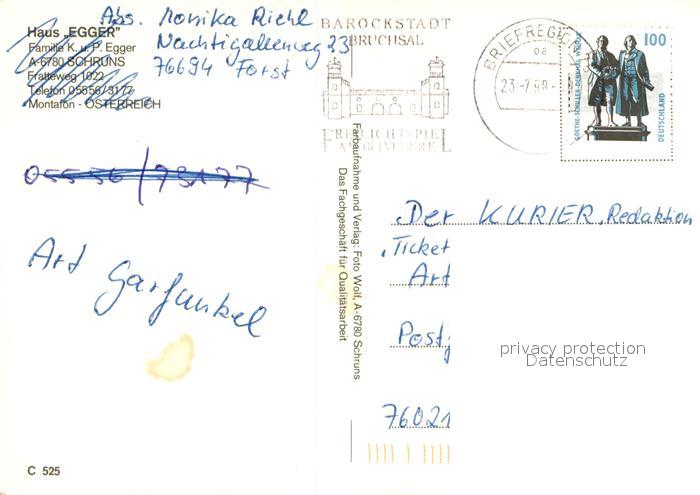 Haus „EGGER"
Familie K. u. P. Egger
A-6780 SCHRUNS
Fratteweg 1022
Telefon 05556/3177
Montafon - ÖSTERREICH
Abs. Monika Riehl
Nachtigallenweg 23
76694 Forst
BAROCKSTADT
BRUCHSAL
FREILICHTSPIEL
AM BELVEDERE
BRIEFREGION
23.-7.98-
100
GOETHE-SCHILLER-DENKMAL WEIMAR
DEUTSCHLAND
Art Garfunkel
Farbaufnahme und Verlag: Foto Wolf, A-6780 Schruns
Das Fachgeschäft für Qualitätsarbeit
Der KURIER, Redaktion
"Ticket
Art
Post
76021
privacy protection
Datenschutz
C 525